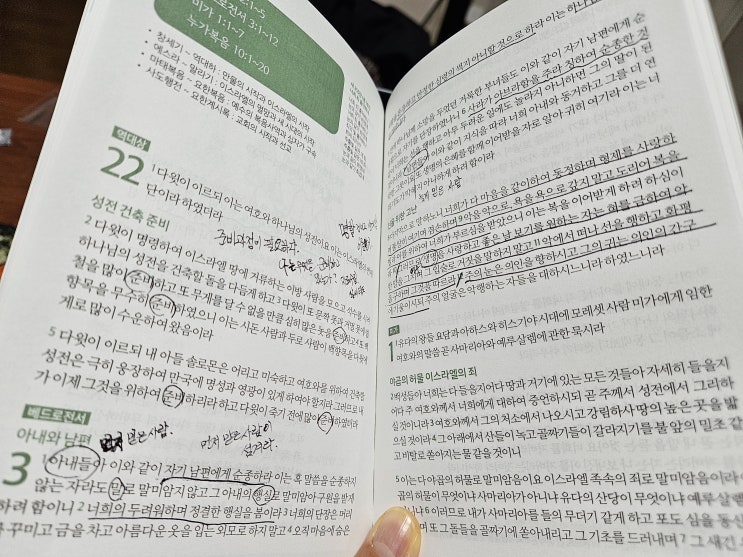 1~5
로전서 3:1~12
미가 1:1~7
누가복음 10:1~20
• 창세기 ~ 역대하 : 만물의 시작과 이스라엘의 시작
• 에스라 ~ 말라기 : 이스라엘의 멸망과 새 시대의 시작
• 마태복음 ~ 요한복음 : 예수의 복음사역과 십자가 구속
• 사도행전 ~ 요한계시록 : 교회의 시작과 선교
역대상
22
1 다윗이 이르되 이는 여호와 하나님의 성전이요 이는 이스라엘의 번제
단이라 하였더라
성전 건축 준비
준비과정이 필요하다.
2 다윗이 명령하여 이스라엘 땅에 거류하는 이방 사람을 모으고 석수를 시켜
하나님의 성전을 건축할 돌을 다듬게 하고 3 다윗이 또 문짝 못과 거멀 못에 쓸
철을 많이 준비하고 또 무게를 달 수 없을 만큼 심히 많은 놋을 준비하고 4 또 백
향목을 무수히 준비하였으니 이는 시돈 사람과 두로 사람이 백향목을 다윗에
게로 많이 수운하여 왔음이라
5 다윗이 이르되 내 아들 솔로몬은 어리고 미숙하고 여호와를 위하여 건축할
성전은 극히 웅장하여 만국에 명성과 영광이 있게 하여야 할지라 그러므로 내
가 이제 그것을 위하여 준비하리라 하고 다윗이 죽기 전에 많이 준비하였더라
베드로전서
아내와 남편
먼저 믿은 사람.
먼저 믿은 사람이
섬겨라.
3
1 아내들아 이와 같이 자기 남편에게 순종하라 이는 혹 말씀을 순종하지
않는 자라도 말로 말미암지 않고 그 아내의 행실로 말미암아 구원을 받게
하려 함이니 2 너희의 두려워하며 정결한 행실을 봄이라 3 너희의 단장은 머리
를 꾸미고 금을 차고 아름다운 옷을 입는 외모로 하지 말고 4 오직 마음에 숨은
안정한 심령의 썩지 아니할 것으로 하라 이는 하나
소망을 두었던 거룩한 부녀들도 이와 같이 자기 남편에게 순
단장하였나니 6 사라가 아브라함을 주라 칭하여 순종한 것
선을 행하고 아무 두려운 일에도 놀라지 아니하면 그의 딸이 된
남편들아 이와 같이 지식을 따라 너희 아내와 동거하고 그를 더 연
생명의 은혜를 함께 이어받을 자로 알아 귀히 여기라 이는 너
막히지 아니하게 하려 함이라
먼저 믿은 사람
위한 고난
말하노니 너희가 다 마음을 같이하여 동정하며 형제를 사랑하
겸손하며 9 악을 악으로, 욕을 욕으로 갚지 말고 도리어 복을
위하여 너희가 부르심을 받았으니 이는 복을 이어받게 하려 하심이
생명을 사랑하고 좋은 날 보기를 원하는 자는 혀를 금하여 악
그 입술로 거짓을 말하지 말고 11 악에서 떠나 선을 행하고 화평
구하며 그것을 따르라 12 주의 눈은 의인을 향하시고 그의 귀는 의인의 간구
기울이시되 주의 얼굴은 악행하는 자들을 대하시느니라 하였느니라
미가
1
1 유다의 왕들 요담과 아하스와 히스기야 시대에 모레셋 사람 미가에게 임한
여호와의 말씀 곧 사마리아와 예루살렘에 관한 묵시라
야곱의 허물 이스라엘의 죄
2 백성들아 너희는 다 들을지어다 땅과 거기에 있는 모든 것들아 자세히 들을지
어다 주 여호와께서 너희에게 대하여 증언하시되 곧 주께서 성전에서 그리하
실 것이니라 3 여호와께서 그의 처소에서 나오시고 강림하사 땅의 높은 곳을 밟
으실 것이라 4 그 아래에서 산들이 녹고 골짜기들이 갈라지기를 불 앞의 밀초 같
고 비탈로 쏟아지는 물 같을 것이니
5 이는 다 야곱의 허물로 말미암음이요 이스라엘 족속의 죄로 말미암음이라 야
곱의 허물이 무엇이냐 사마리아가 아니냐 유다의 산당이 무엇이냐 예루살렘
아니냐 6 이러므로 내가 사마리아를 들의 무더기 같게 하고 포도 심을 동산
같게 하며 또 그 돌들을 골짜기에 쏟아내리고 그 기초를 드러내며 7 그 새긴